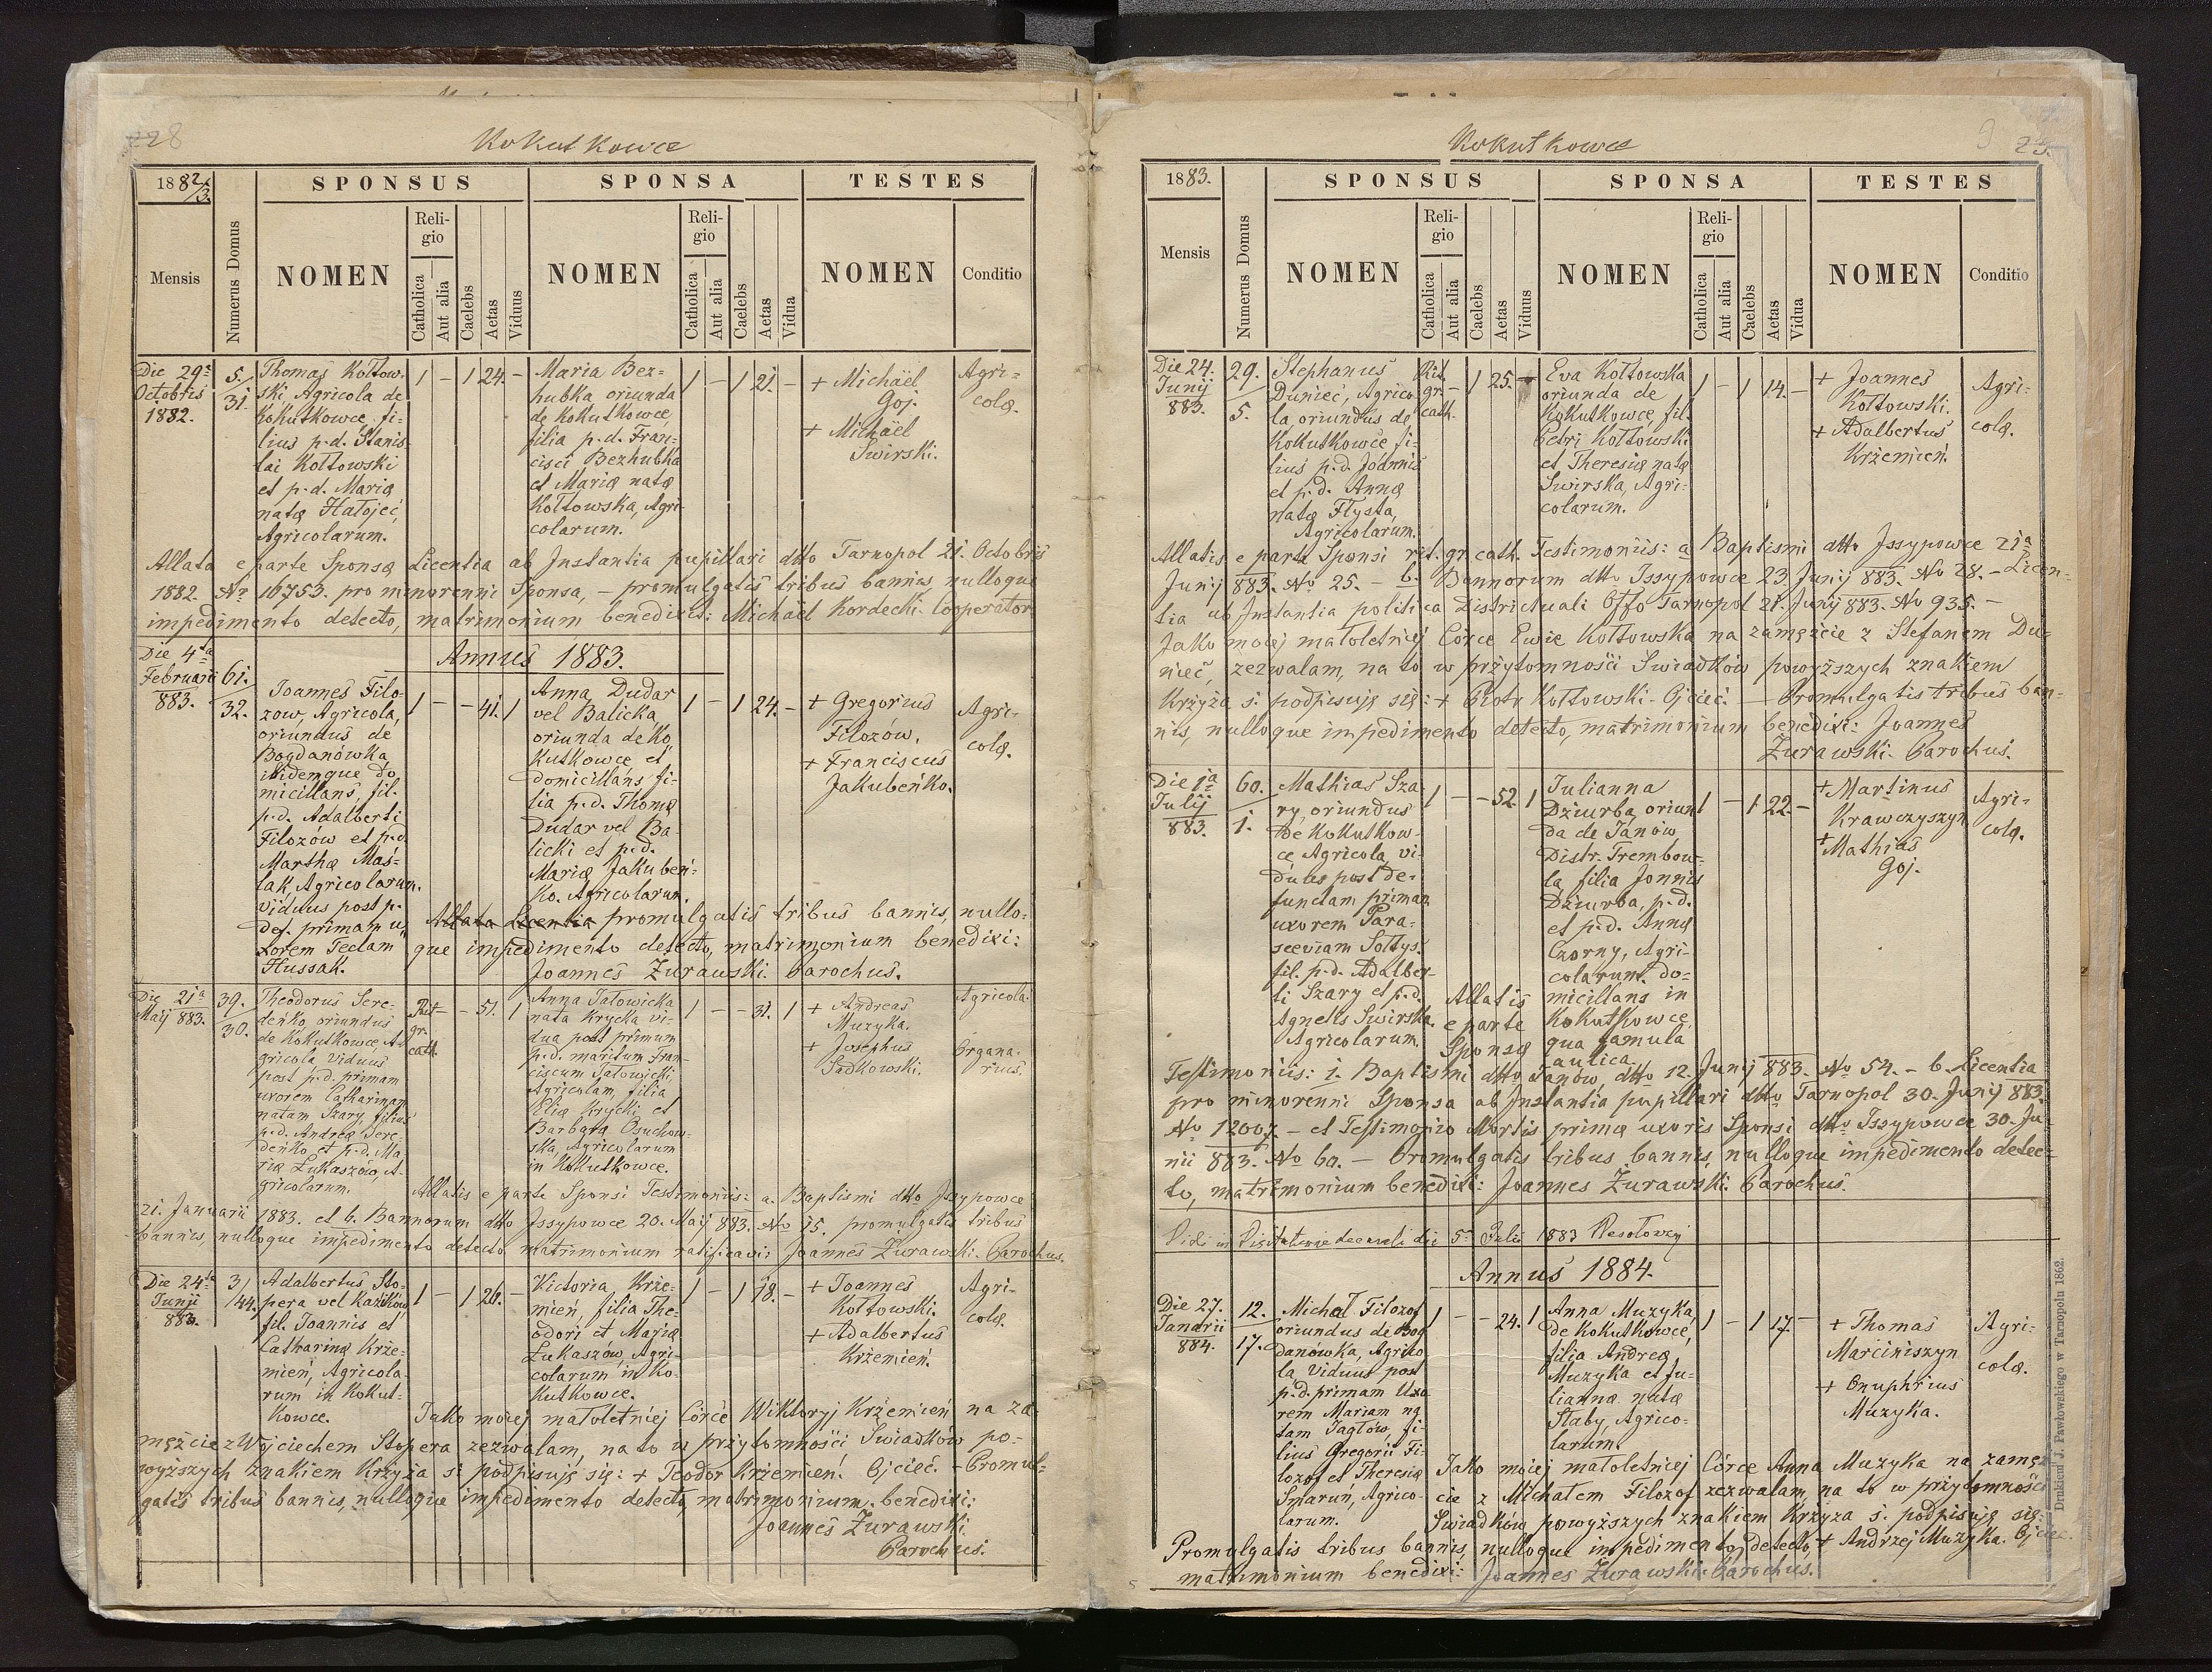 228
Kokutkowce
1882/3.
SPONSUS
SPONSA
TESTES
Mensis
Numerus Domus
NOMEN
Religio
Catholica
Aut alia
Caelebs
Aetas
Viduus
NOMEN
Religio
Catholica
Aut alia
Caelebs
Aetas
Vidua
NOMEN
Conditio
Die 29a
Octobris
1882.
5./31.
Thomas Kołtow-
ski, Agricola de
Kokutkowce, fi-
lius p.d. Stanis-
lai Kołtowski
et p.d. Maria
nata Hałojeć,
Agricolarum.
1 – 1 24. –
Maria Bez-
hubka oriunda
de Kokutkowce,
filia p.d. Fran-
cisci Bezhubka
et Maria nata
Kołtowska, Agri-
colarum.
1 – 1 21. –
+ Michaël
Goj.
+ Michaël
Swirski.
Agri-
colæ.
Allata e parte Sponsæ Licentia ab Instantia pupillari dtto Tarnopol 21. Octobris
1882. No 16753. pro minorenni Sponsa, – promulgatis tribus bannis, nulloque
impedimento detecto, matrimonium benedixit: Michaël Kordecki. Cooperator
Annus 1883.
Die 4ta
Februarii
883.
61./32.
Joannes Filo-
zow, Agricola,
oriundus de
Bogdanówka,
ibidemque do-
micillans, fil.
p.d. Adalberti
Filozów et p.d.
Marthæ Maś-
lak, Agricolarum,
viduus post p.
def. primam u-
xorem Teclam
Hussak.
1 – – 41. 1
Anna Dudar
vel Balicka,
oriunda de Ko-
kutkowce et
domicillans, fi-
lia p.d. Thomæ
Dudar vel Ba-
licki et p.d.
Mariæ Jakubeń-
ko. Agricolarum.
1 – 1 24. –
+ Gregorius
Filozów.
+ Franciscus
Jakubeńko.
Agri-
colæ.
Allata Licentia promulgatis tribus bannis, nullo-
que impedimento detecto, matrimonium benedixi:
Joannes Żurawski. Parochus.
Die 21a
Maij 883.
39./30.
Theodorus Sere-
deńko, oriundus
de Kokutkowce, A-
gricola, Viduus
post p.d. primam
uxorem Catharinam
natam Szary, filius
p.d. Andreæ Sere-
deńko et p.d. Ma-
riæ Łukaszów, A-
gricolarum.
Rit. gr. cath.
– – 51. 1
Anna Jałowicka
nata Krycka vi-
dua post primum
p.d. maritum Fran-
ciscum Jałowicki,
Agricolam, filia
Eliæ Krycki, et
Barbara Osuchow-
ska, Agricolarum
in Kokutkowce.
1 – – 31. 1
+ Andreas
Muzyka.
+ Josephus
Sadkowski.
Agricola.
Organa-
rius.
Allatis e parte Sponsi Testimoniis: a. Baptismi dtto Jssypowce
21. Januarii 1883. et b. Bannorum dtto Jssypowce 20. Maij 883. No 15. promulgatis tribus
bannis, nulloque impedimento detecto matrimonium ratificavi: Joannes Żurawski. Parochus.
Die 24ta
Junji
883.
3/44.
Adalbertus Sto-
pera vel Kazików
fil. Joannis et
Catharinæ Krże-
mień, Agricola-
rum in Kokut-
kowce.
1 – 1 26. –
Victoria Krże-
mień, filia The-
odori et Mariæ
Łukaszów, Agri-
colarum in Ko-
kutkowce.
1 – 1 18. –
+ Joannes
Kołtowski.
+ Adalbertus
Krżemień.
Agri-
colæ.
Jako mojej małoletniej Córce Wiktoryj Krżemień na za-
mężcie z Wojciechem Stopera zezwalam, na to w przytomności Swiadków po-
wyższych znakiem Krzyża s: podpisuję się: + Teodor Krżemień. Ojcieć. – Promul-
gatis tribus bannis, nulloque impedimento detecto, matrimonium benedixi:
Joannes Żurawski.
Parochus.
9
Kokutkowce
1883.
SPONSUS
SPONSA
TESTES
Mensis
Numerus Domus
NOMEN
Religio
Catholica
Aut alia
Caelebs
Aetas
Viduus
NOMEN
Religio
Catholica
Aut alia
Caelebs
Aetas
Vidua
NOMEN
Conditio
Die 24.
Junij
883.
29./5.
Stephanus
Dunieć, Agrico-
la, oriundus de
Kokutkowce, fi-
lius p.d. Joannis
et p.d. Annæ
natæ Flysta,
Agricolarum.
Rit. gr. cath.
– 1 25. –
Eva Kołtowska
oriunda de
Kokutkowce, fil.
Petri Kołtowski
et Theresiæ natæ
Swirska, Agri-
colarum.
1 – 1 14. –
+ Joannes
Kołtowski.
+ Adalbertus
Krżemień.
Agri-
colæ.
Allatis e parte Sponsi rit. gr. cath. Testimoniis: a Baptismi dtto Jssypowce 21a
Junij 883. No 25. – b. Bannorum dtto Jssypowce 23. Junij 883. No 28. – Licen-
tia ab Instantia politica Districtuali Offo Tarnopol 21. Junij 883. No 935. –
Jako mojej małoletniej Córce Ewie Kołtowska na zamężcie z Stefanem Du-
nieć, zezwalam, na to w przytomności Swiadków powyższych znakiem
Krzyża s: podpisuję się: + Piotr Kołtowski. Ojcieć. — Promulgatis tribus ban-
nis, nulloque impedimento detecto, matrimonium benedixi: Joannes
Żurawski. Parochus.
Die 1a
Julij
883.
60./1.
Mathias Sza-
ry, oriundus
de Kokutkow-
ce, Agricola, vi-
duus post de-
functam primam
uxorem Para-
sceviam Sołtys.
fil. p.d. Adalber-
ti Szary et p.d.
Agnetis Swirska,
Agricolarum.
1 – – 52. 1
Julianna
Dziurba, oriun-
da de Janów
Distr. Trembow-
la, filia Jonnis
Dziurba, p.d.
et p.d. Annæ
Czorny, Agri-
colarum. do-
micillans in
Kokutkowce,
qua famula
aulica.
1 – 1 22. –
+ Martinus
Krawczyszyn
+ Mathias
Goj.
Agri-
colæ.
Allatis
e parte
Sponsæ
Testimoniis: 1. Baptismi dtto Janów, dtto 12. Junij 883. No 54. – b. Licentia
pro minorenni Sponsa ab Instantia pupillari dtto Tarnopol 30. Junij 883.
No 12007. – et Testimonio Mortis primæ uxoris Sponsi dtto Jssypowce 30. Ju-
nii 883. No 60. — Promulgatis tribus bannis, nulloque impedimento detec-
to, matrimonium benedixi: Joannes Żurawski. Parochus.
Vidi in Visitatione decanali die 5a Julii 1883
Annus 1884.
Die 27.
Januarii
884.
12./17.
Michał Filozof
oriundus de Bog-
danówka, Agrico-
la, Viduus post
p.d. primam Uxo-
rem Mariam na-
tam Jagłów, fi-
lius Gregorii Fi-
lozof et Theresiæ
Smaruń, Agrico-
larum.
1 – – 24. 1
Anna Muzyka,
de Kokutkowce,
filia Andreæ
Muzyka et Ju-
liannæ natæ
Słaby, Agrico-
larum.
1 – 1 17. –
+ Thomas
Marciniszyn
+ Onuphrius
Muzyka.
Agri-
colæ.
Jako mojej małoletniej Córce Anna Muzyka na zamęż-
cie z Michałem Filozof zezwalam, na to w przytomności
Swiadków powyższych znakiem Krzyża s: podpisuję się:
Promulgatis tribus bannis, nulloque impedimento detecto, + Andrzej Muzyka. Ojciec.
matrimonium benedixi: Joannes Żurawski. Parochus.
Drukiem J. Pawłowskiego w Tarnopolu 1862.